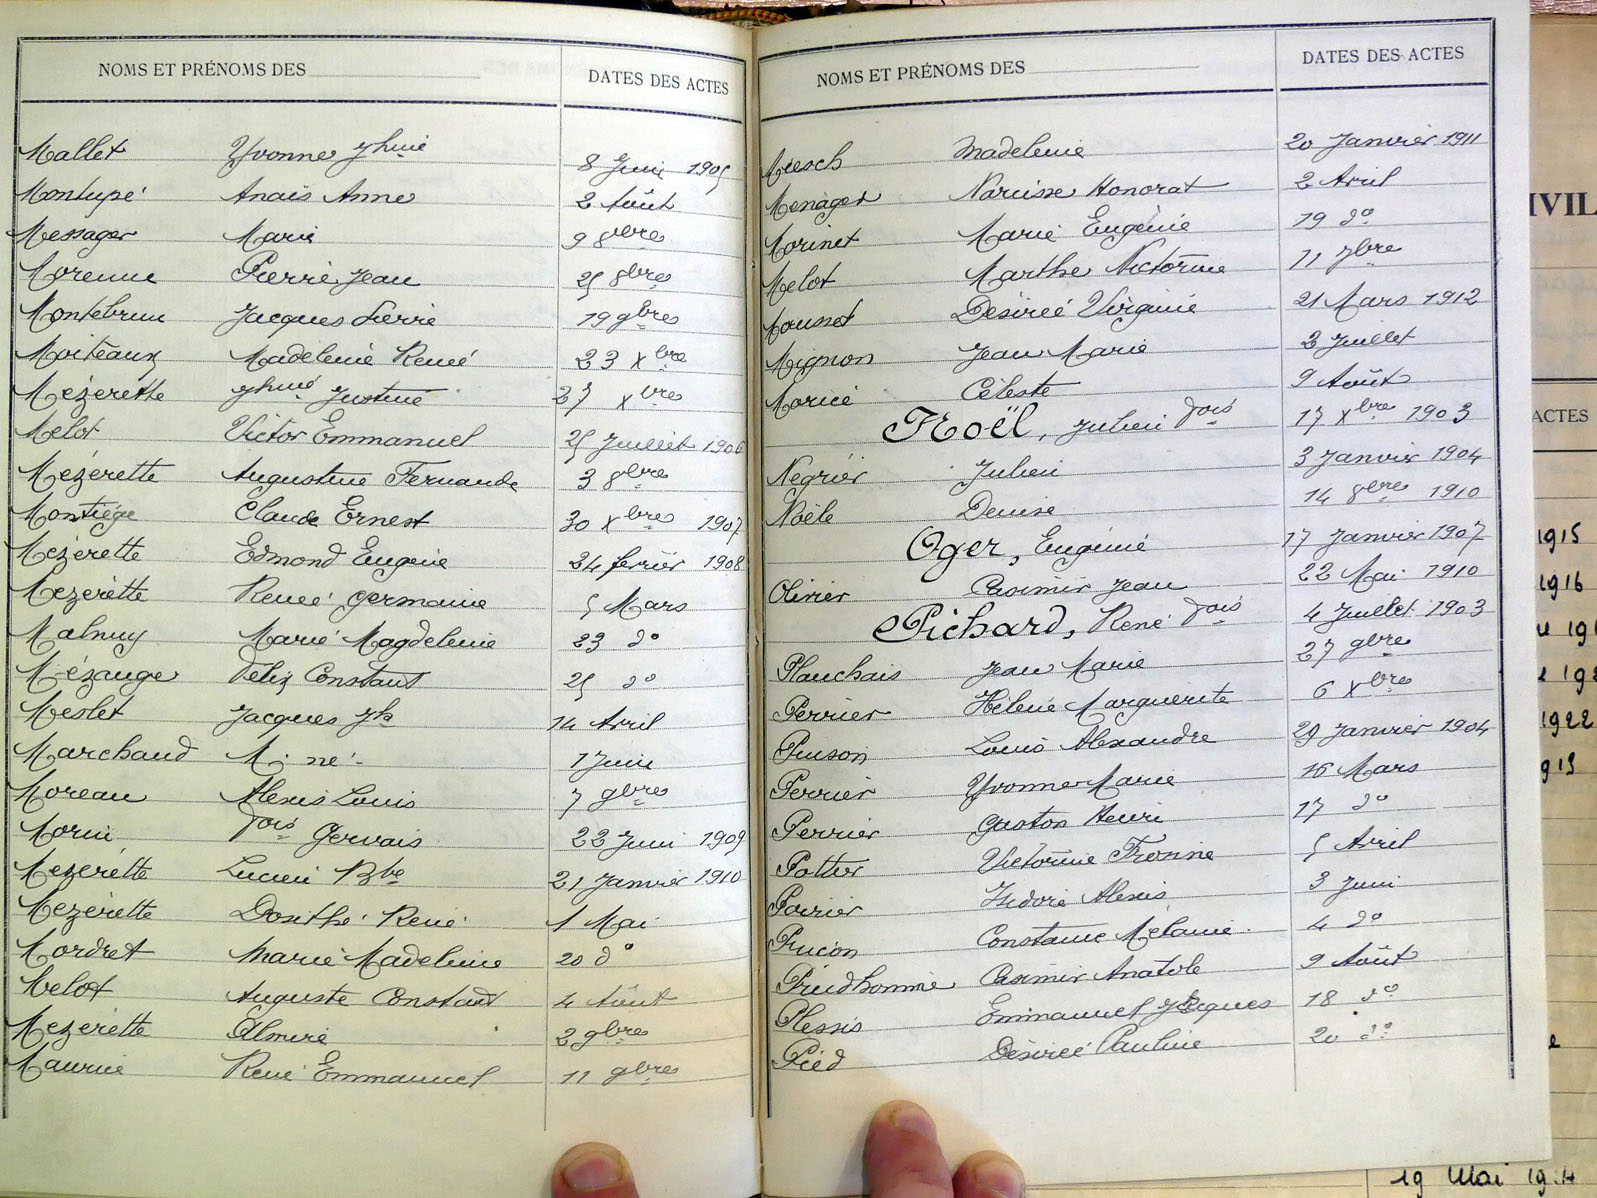 NOMS ET PRÉNOMS DES DATES DES ACTES
Mallet Yvonne Jhine 8 Juin 1905
Montupé Anaïs Anne 2 Août
Messager Marie 9 8bres
Morenne Pierre Jean 25 8bres
Montebrun Jacques Pierre 19 9bres
Moiteaux Madeleine René 23 Xbre
Mézerette Jhine Justine 27 Xbres
Melot Victor Emmanuel 25 Juillet 1906
Mézérette Augustine Fernande 3 8bres
Montiège Claude Ernest 30 Xbres 1907
Mezerette Edmond Eugène 24 février 1908
Mezerette Renée Germaine 5 Mars
Malnuy Marie Magdeleine 23 do
Mézange Félix Constant 25 do
Meslet Jacques Jh 14 Avril
Marchaud M. né 1 Juin
Moreau Alexis Louis 7 9bres
Morin Fois Gervais 22 Juin 1909
Mezerette Lucien Bte 21 Janvier 1910
Mezérette Dosithé René 1 Mai
Mordret Marie Madeleine 20 do
Melot Auguste Constant 4 Août
Mezerette Elmire 2 9bres
Maurice René Emmanuel 11 9bres
NOMS ET PRÉNOMS DES DATES DES ACTES
Miesch Madeleine 20 Janvier 1911
Menager Narcisse Honorat 2 Avril
Morinet Marie Eugénie 19 do
Melot Marthe Victorine 11 7bre
Mousset Désirée Virginie 21 Mars 1912
Mignon Jean Marie 2 Juillet
Morice Céleste 9 Août
Noël, Julien Fois 17 Xbre 1903
Negrier Julien 3 Janvier 1904
Noële Denise 14 8bres 1910
Oger, Eugénie 17 Janvier 1907
Olivier Casimir Jean 22 Mai 1910
Pichard, René Fois 4 Juillet 1903
Planchais Jean Marie 27 9bre
Perrier Hélène Marguerite 6 Xbres
Puison Louis Alexandre 29 Janvier 1904
Perrier Yvonne Marie 16 Mars
Perrier Gaston Henri 17 do
Pottier Victorine 5 Avril
Poirier Isidore Alexis 3 Juin
Constance Mélanie 4 do
Prudhomme Casimir Anatole 9 Août
Plessis Emmanuel Jacques 18 do
Pied Désirée Pauline 20 do
IVIL
ACTES
1915
1916
1922
19 Mai 19